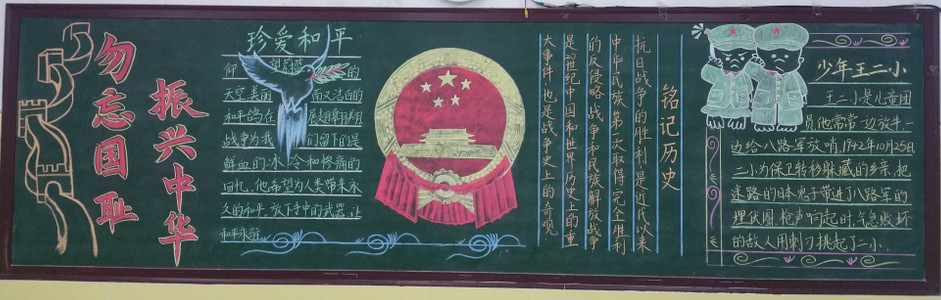 勿忘国耻
振兴中华
珍爱和平
仰望蔚蓝的
天空,美丽而又洁白的
和平鸽在展翅翱翔
战争为我们留下的是
鲜血的冰冷和疼痛的
回忆,他希望为人类带来永
久的和平,放下手中的武器,让
和平永驻
铭记历史
抗日战争的胜利,是近代以来
中华民族第一次取得完全胜利
的反侵略战争和民族解放战争
是20世纪中国和世界历史上的重
大事件,也是战争史上的奇观
少年王二小
王二小是儿童团
员他常常一边放牛,一
边给八路军放哨,1942年10月25日
二小为保卫转移躲藏的乡亲,把
迷路的日本鬼子带进了八路军的
埋伏圈,枪声响起时,气急败坏
的敌人用刺刀挑起了二小.